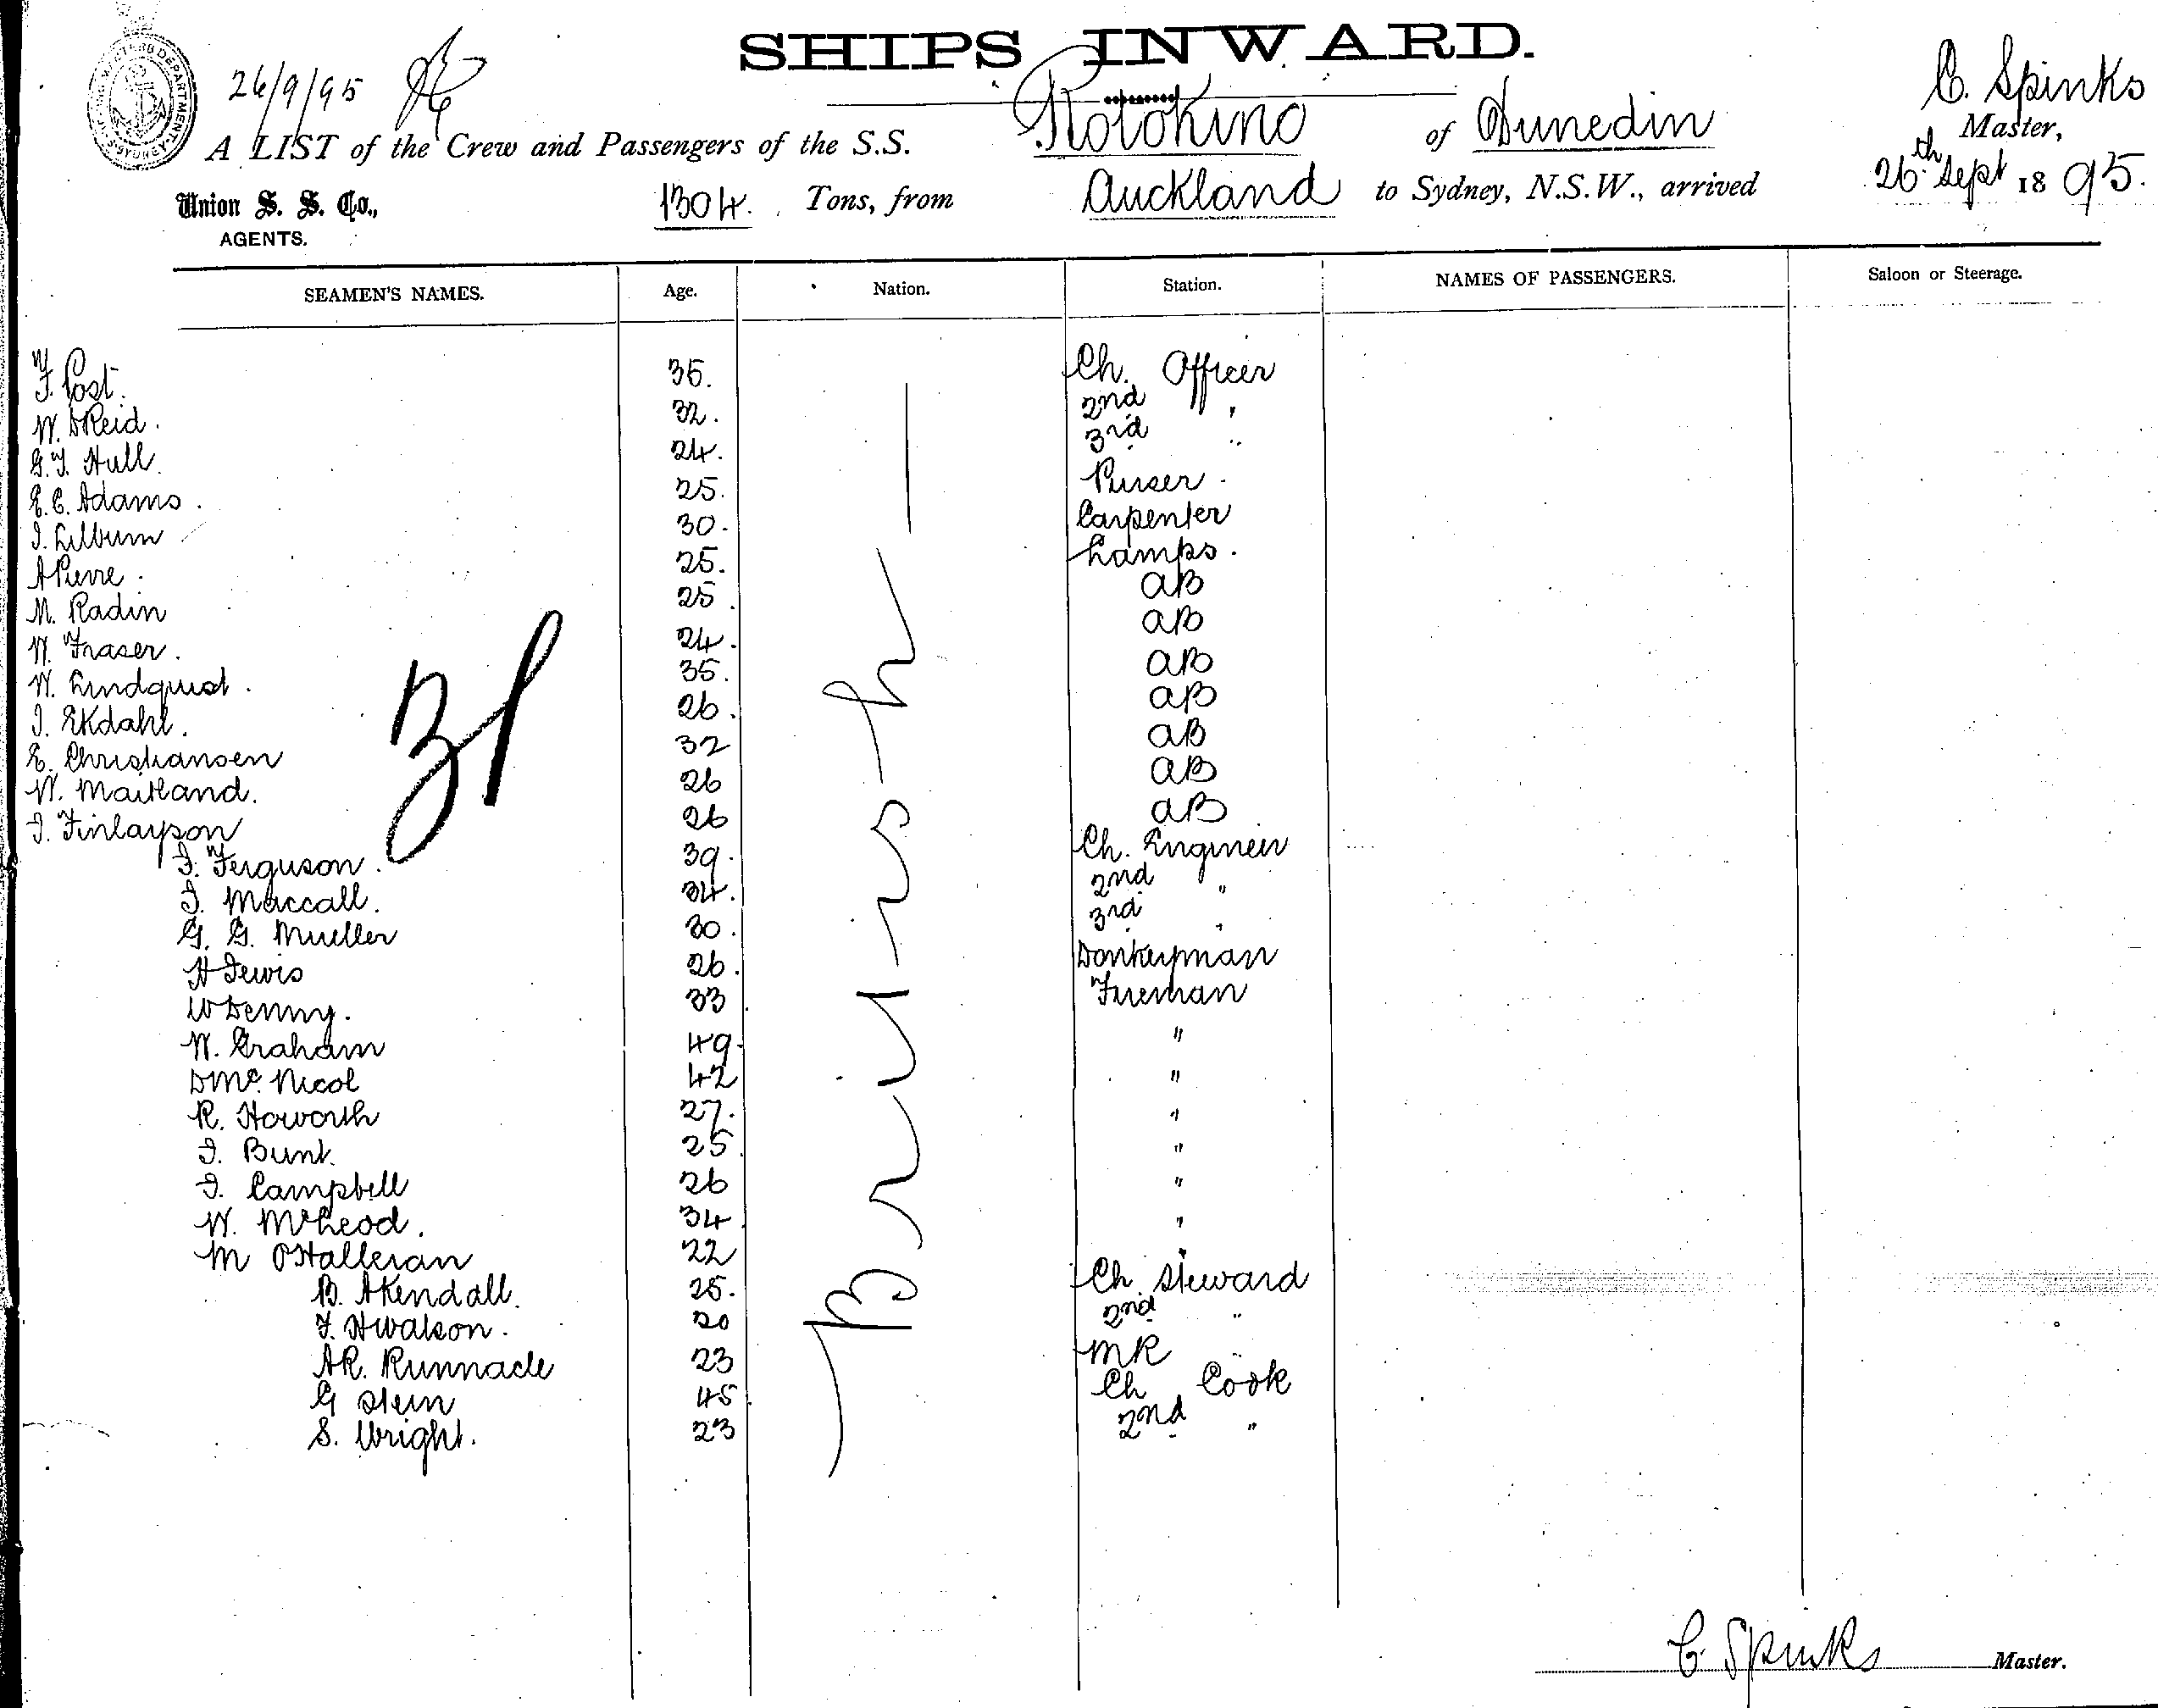 SHIPS INWARD.
26/9/95
C. Spinks
A LIST of the Crew and Passengers of the S.S. Rotokino of Dunedin Master,
Union S. S. Co., 1304. Tons, from Auckland to Sydney, N.S.W., arrived 26th Sept 1895.
AGENTS.
SEAMEN'S NAMES. Age. Nation. Station. NAMES OF PASSENGERS. Saloon or Steerage.
British
F. Post. 35. Ch. Officer
W. D Reid. 32. 2nd "
G. F. Hull. 24. 3rd "
E. C. Adams. 25. Purser.
J. Lilburn 30. Carpenter
A Pierre. 25. Lamps.
M. Radin 25. AB
W. Fraser. 24. AB
W. Lindquist. 35. AB
J. Ekdahl. 26. AB
E. Christiansen 32 AB
W. Maitland. 26 AB
J. Finlayson 26 AB
J. Ferguson. 39. Ch. Engineer
J. Maccall. 34. 2nd "
G. G. Mueller 30. 3rd "
H Jewis 26. Donkeyman
W Denny. 33 Fireman
W. Graham 49. "
D Mc. Nicol 42 "
R. Howorth 27. "
J. Bunt. 25. "
J. Campbell 26 "
W. McLeod. 34. "
M OHalleran 22 "
B. A Kendall. 25. Ch Steward
F. H Watson. 20 2nd "
A R. Runnacle 23 MR "
G Stein 45 Ch Cook
S. Wright. 23 2nd "
C Spinks Master.